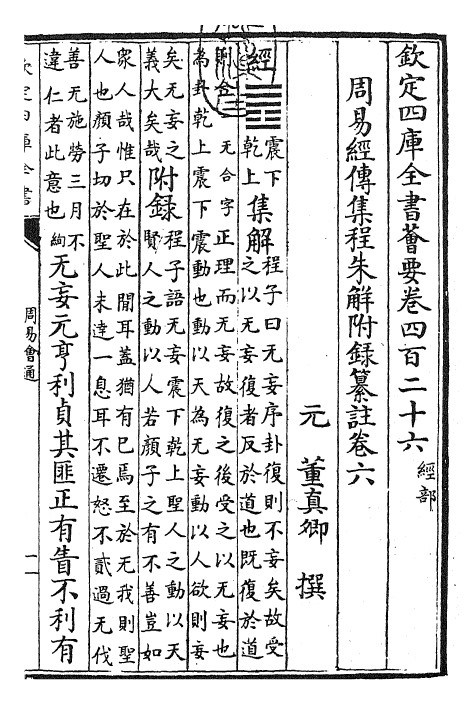 欽定四庫全書薈要卷四百二十六 經部
周易經傳集程朱解附錄纂註卷六
元 董真卿 撰
經 ䷘ 震下
乾上 集解 程子曰无妄序卦復則不妄矣故受
之以无妄復者反於道也既復於道
則合 无合字 正理而无妄故復之後受之以无妄也
為卦乾上震下震動也動以天為无妄動以人欲則妄
矣无妄之
義大矣哉 附錄 程子語无妄震下乾上聖人之動以天
賢人之動以人若顏子之有不善豈如
衆人哉惟只在於此間耳蓋猶有已焉至於无我則聖
人也顏子切於聖人未達一息耳不遷怒不貳過无伐
善无施勞三月不
違仁者此意也 絢 无妄元亨利貞其匪正有眚不利有
欽定四庫全書
周易會通
一